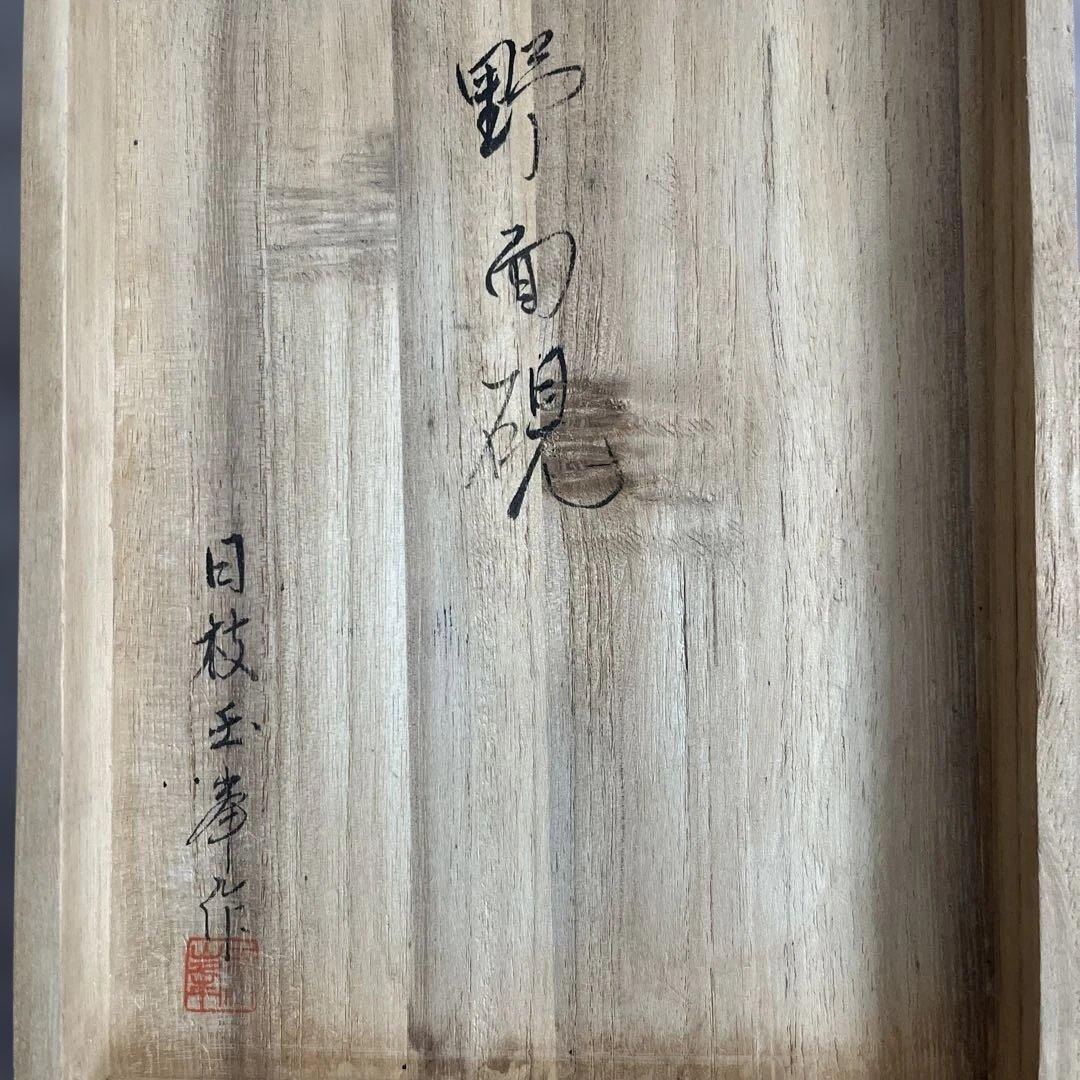 野面硯
日枝玉峯作